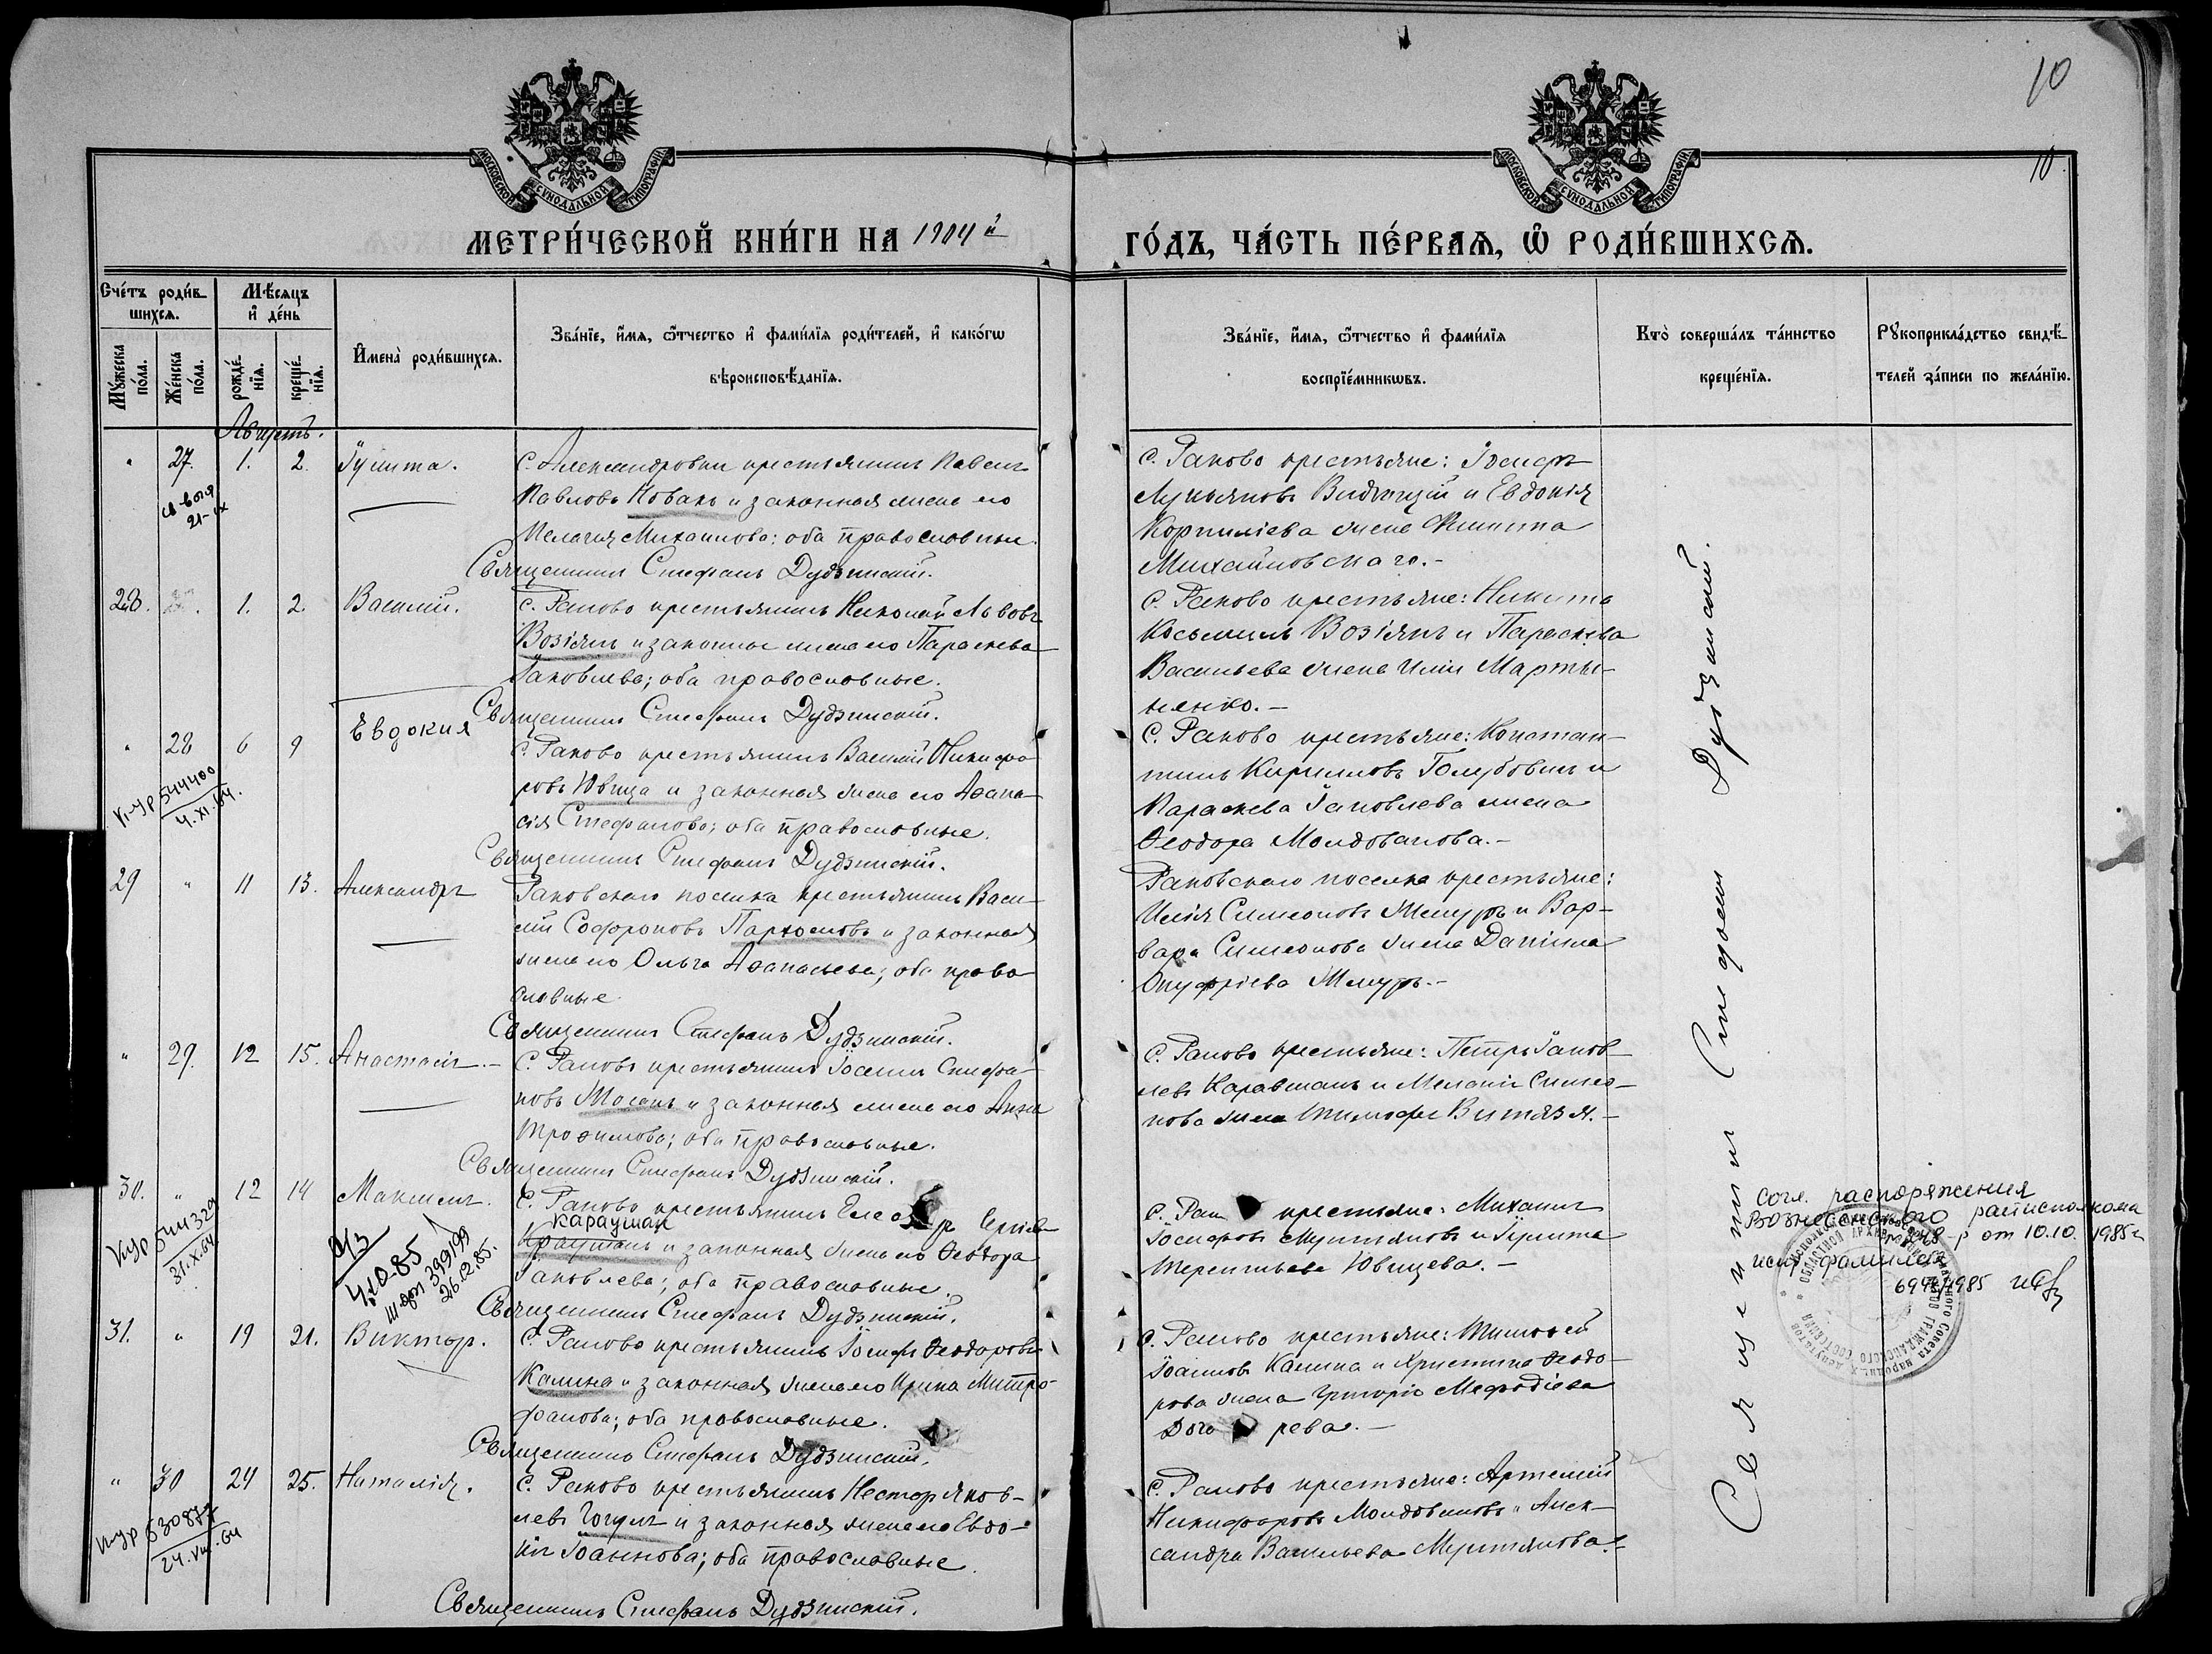 10
10
МОСКОВСКОЙ СѴНОДАЛЬНОЙ ТИПОГРАФІИ
МОСКОВСКОЙ СѴНОДАЛЬНОЙ ТИПОГРАФІИ
МЕТРИ́ЧЕСКОЙ КНИ́ГИ НА 1904й
ГО́ДЪ, ЧА́СТЬ ПЕ́РВАѦ, Ѿ РОДИ́ВШИХСѦ.
Сче́тъ роди́в-
шихсѧ.
Мꙋ́жеска
по́ла.
Же́нска
по́ла.
Мѣ́сѧцъ
и҆ де́нь
рожде́-
нїѧ.
креще́-
нїѧ.
И҆мена̀ роди́вшихсѧ.
Зва́нїе, и҆́мѧ, ѻ҆́тчество и҆ фами́лїѧ роди́телей, и҆ како́гѡ
вѣроисповѣ́данїѧ.
Зва́нїе, и҆́мѧ, ѻ҆́тчество и҆ фами́лїѧ
воспрїе́мникѡвъ.
Кто̀ соверша́лъ та́инство
креще́нїѧ.
Рꙋкоприкла́дство свидѣ́-
телей за́писи по жела́нїю.
Августъ.
" 27. 1. 2. Іулита.
св-во я
21-IX
с. Александровки крестьянинъ Павелъ
Павловъ Коваль и законная жена его
Пелагія Михаилова; оба православные.
Священникъ Стефанъ Дудзинскій.
с. Раково крестьяне: Іосифъ
Лукьяновъ и Евдокія
Корниліева жена Филиппа
Михайловскаго.-
28. 1. 2. Василій.
с. Раково крестьянинъ Николай Львовъ
Возіянъ и законная жена его Параскева
Іаковлева; оба православные.
Священникъ Стефанъ Дудзинскій.
с. Раково крестьяне: Никита
Косьминъ Возіянъ и Параскева
Васильева жена Иліи Марты-
ненко.-
" 28 6 9 Евдокия
VI-УР 544400
4.XI.64.
с. Раково крестьянинъ Василій Никифо-
ровъ Ювица и законная жена его Афана-
сія Стефанова; оба православные.
Священникъ Стефанъ Дудзинскій.
с. Раково крестьяне: Констан-
тинъ Кирилловъ Голубовичъ и
Параскева Іаковлева жена
Ѳеодора Молдованова.-
29 " 11 13. Александръ
Раковскаго поселка крестьянинъ Васи-
лій Софроновъ Пархомовъ и законная
жена его Ольга Афанасьева; оба право-
славные.
Священникъ Стефанъ Дудзинскій.
Раковскаго поселка крестьяне:
Илія Симеоновъ и Вар-
вара Симеонова жена Даніила
Онуфріева
" 29. 12 15. Анастасія.-
с. Раково крестьянинъ Іосифъ Стефа-
новъ и законная жена его Анна
Трофимова; оба православные.
Священникъ Стефанъ Дудзинскій.
с. Раково крестьяне: Петръ Іаков-
левъ Караvшанъ и Меланія Симео-
нова жена Тимофея Витязя.-
30. " 12 14 Максимъ.
VI-УР 544329
31.X.64
4.10.85
III-ФП 399199
26.12.85.
с. Раково крестьянинъ Елеазаръ Сергіевъ
Караушан
и законная жена его Ѳеодора
Іаковлева; оба православные.
Священникъ Стефанъ Дудзинскій.
с. Рак крестьяне: Михаилъ
Іосифовъ Мунтяновъ и Іулита
Терентьева Ювицева.-
согл. распоряжения
Вознесенского райисполкома
от 10.10.1985г
испр. фамилия
694/1985
31. " 19 21. Викторъ.
с. Раково крестьянинъ Іосифъ Ѳеодоровъ
Калина и законная жена его Ирина Митро-
фанова; оба православные.
Священникъ Стефанъ Дудзинскій.
с. Раково крестьяне: Тимофей
Іоанновъ Калина и Христина Ѳеодо-
рова жена Григорія Мефодіева
" 30 24 25. Наталія.
VI-УР 530877
24.VIII.64
с. Раково крестьянинъ Несторъ Яков-
левъ Гогулъ и законная жена его Евдо-
кія Іоаннова; оба православные.
Священникъ Стефанъ Дудзинскій.
с. Раково крестьяне: Артемій
Никифоровъ Молдовановъ и Алек-
сандра Васильева Мунтянова.-
Священникъ Стефанъ Дудзинскій.